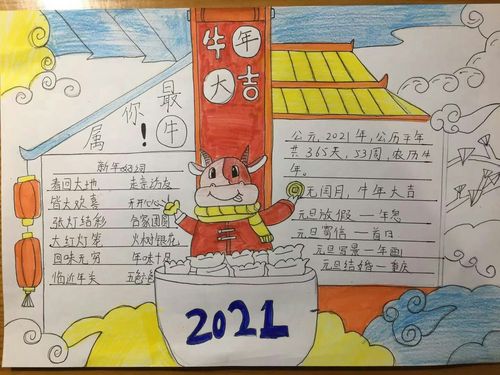 牛年
大吉
最
你
属
牛
!
新年好词
春回大地 走亲访友
皆大欢喜 开开心心
张灯结彩 合家团圆
大红灯笼 火树银花
回味无穷 年味十足
临近年关
公元,2021年,公历平年
共365天,53周,农历牛
年。
无闰月,牛年大吉
元旦放假一年忽
元旦写信一首日
元旦写景一年画
元旦结婚一重庆
2021